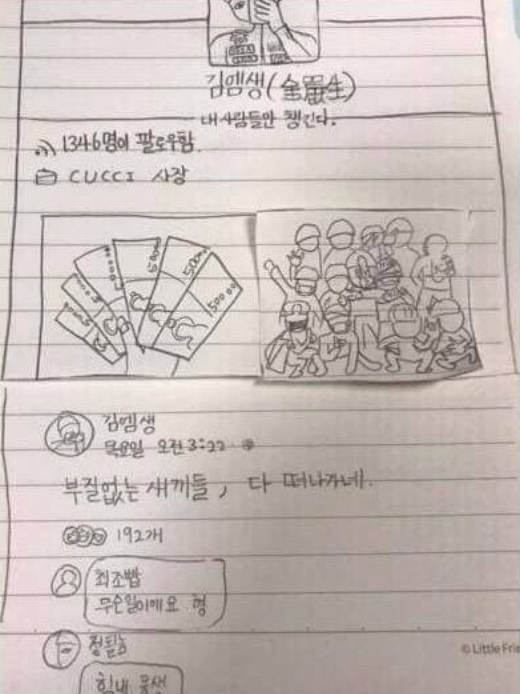 김엠생(金嚴生)
내사람들만 챙긴다.
1346명이 팔로우함.
CUCCI 사장
50000
50000
50000
50000
50000
50000
김엠생
목요일 오전 3:22
부질없는 새끼들, 다 떠나가네.
192개
최조빱
무슨일이에요 형
정틀농
힘내 동생
© Little Frie